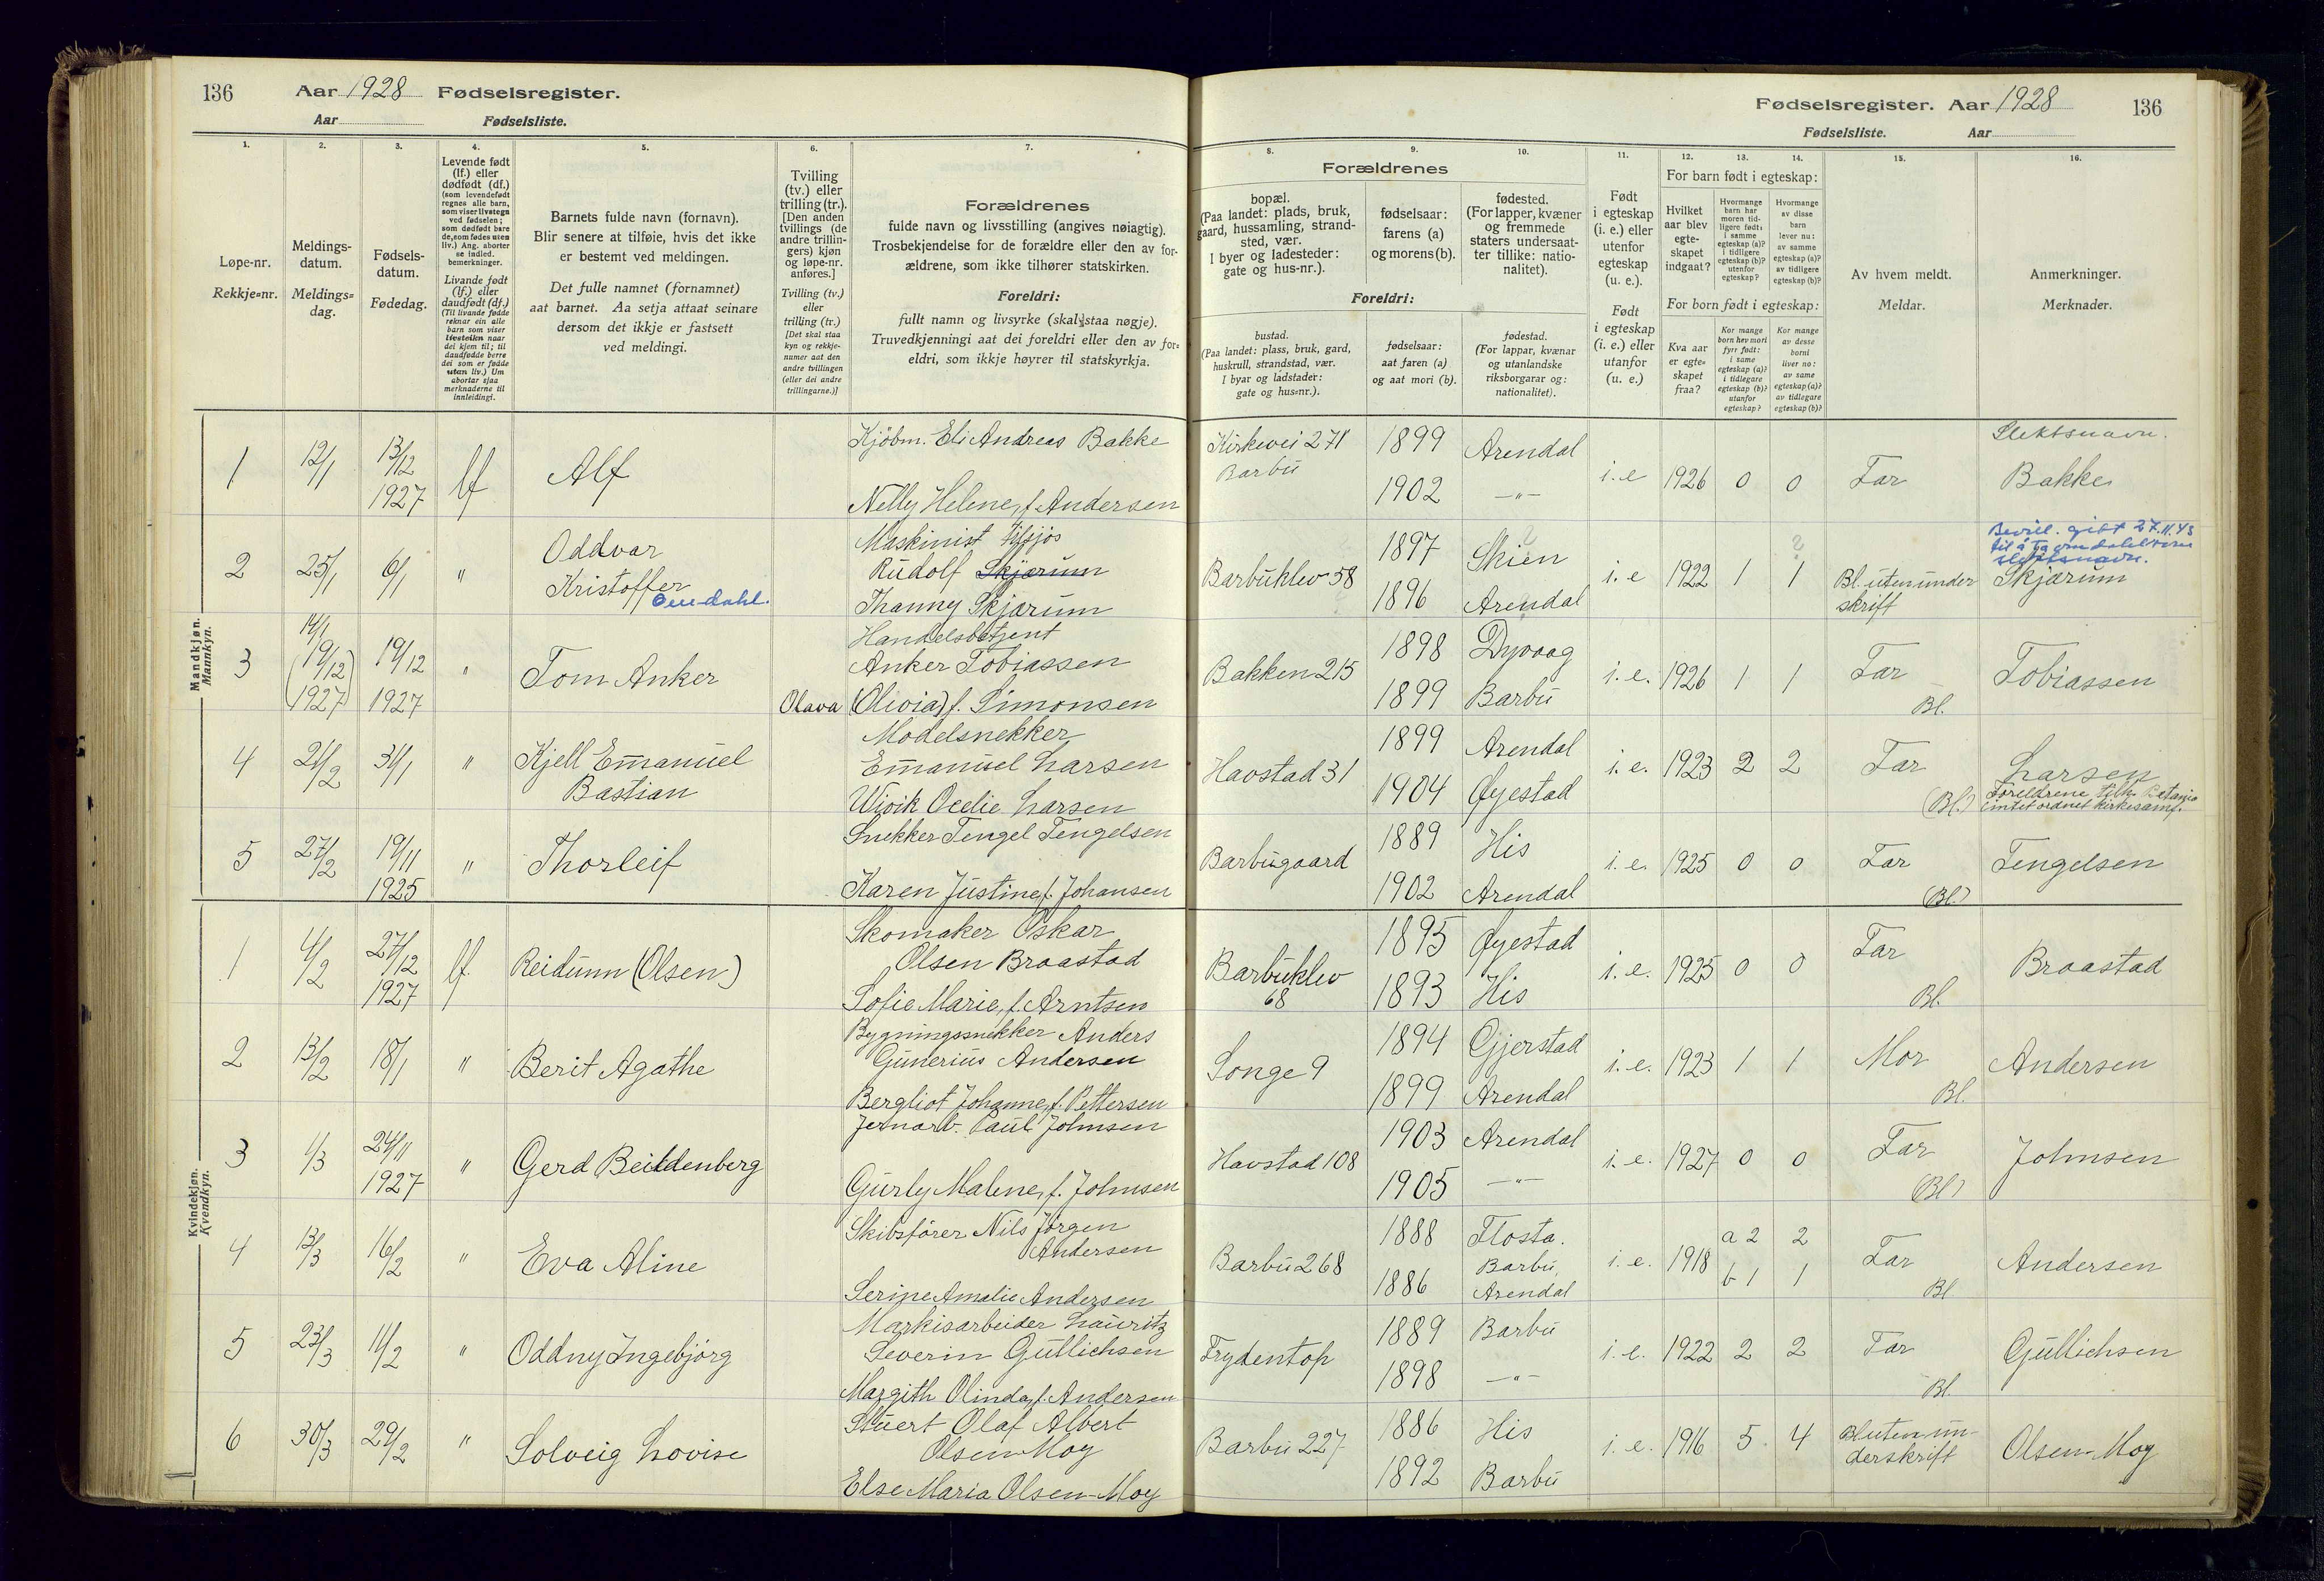 136 Aar 1928 Fødselsregister.
Aar Fødselsliste.
Fødselsregister. Aar 1928 136
Fødselsliste. Aar
1. 2. 3. 4. 5. 6. 7. 8. 9. 10. 11. 12. 13. 14. 15. 16.
Løpe-nr.
Rekkje-nr.
Meldings-
datum.
Meldings-
dag.
Fødsels-
datum.
Fødedag.
Levende født
(lf.) eller
dødfødt (df.)
(som levendefødt
regnes alle barn,
som viser livstegn
ved fødselen;
som dødfødt bare
de, som fødes uten
liv.) Ang. aborter
se indled.
bemerkninger.
Livande født
(lf.) eller
daudfødt (df.)
(Til livande fødde
reknar ein alle
barn som viser
livsteikn naar
dei kjem til; til
daudfødde berre
dei som er fødde
utan liv.) Um
abortar sjaa
merknaderne til
innleidingi.
Barnets fulde navn (fornavn).
Blir senere at tilføie, hvis det ikke
er bestemt ved meldingen.
Det fulle namnet (fornamnet)
aat barnet. Aa setja attaat seinare
dersom det ikkje er fastsett
ved meldingi.
Tvilling
(tv.) eller
trilling (tr.).
[Den anden
tvillings (de
andre trillin-
gers) kjøn
og løpe-nr.
anføres.]
Tvilling (tv.)
eller
trilling (tr.)
[Det skal staa
kyn og rekkje-
numer aat den
andre tvillingen
(eller dei andre
trillingarne.)]
Forældrenes
fulde navn og livsstilling (angives nøiagtig).
Trosbekjendelse for de forældre eller den av for-
ældrene, som ikke tilhører statskirken.
Foreldri:
fullt namn og livsyrke (skal staa nøgje).
Truvedkjenningi aat dei foreldri eller den av for-
eldri, som ikkje høyrer til statskyrkja.
Forældrenes
bopæl.
(Paa landet: plads, bruk,
gaard, hussamling, strand-
sted, vær.
I byer og ladesteder:
gate og hus-nr.).
fødselsaar:
farens (a)
og morens (b).
fødested.
(For lapper, kvæner
og fremmede
staters undersaat-
ter tillike: natio-
nalitet).
Foreldri:
bustad.
(Paa landet: plass, bruk, gard,
huskrull, strandstad, vær.
I byar og ladstader:
gate og hus-nr.).
fødselsaar:
aat faren (a)
og aat mori (b).
fødestad.
(For lappar, kvænar
og utanlandske
riksborgarar og:
nationalitet).
Født
i egteskap
(i. e.) eller
utenfor
egteskap
(u. e.).
Født
i egteskap
(i. e.) eller
utanfor
(u. e.)
For barn født i egteskap:
Hvilket
aar blev
egte-
skapet
indgaat?
Hvormange
barn har
moren tid-
ligere født:
i samme
egteskap (a)?
i tidligere
egteskap (b)?
utenfor
egteskap?
Hvormange
av disse
barn
lever nu:
av samme
egteskap (a)?
av tidligere
egteskap (b)?
For born født i egteskap:
Kva aar
er egte-
skapet
fraa?
Kor mange
born hev mori
fyrr født:
i same
egteskap (a)?
i tidlegare
egteskap (b)?
utanfor
egteskap?
Kor mange
av desse
borni
liver no:
av same
egteskap (a)?
av tidlegare
egteskap (b)?
Av hvem meldt.
Meldar.
Anmerkninger.
Merknader.
Mandkjøn.
Mannkyn.
1 12/1 13/12 1927 lf Alf
Kjøbm. Eli Andreas Bakke
Nelly Helene, f. Andersen
Kirkevei 271
Barbu
1899 Arendal
1902 —"—
i. e 1926 0 0 Far
Slektsnavn.
Bakke
2 25/1 6/1 " Oddvar
Kristoffer
Omdahl.
Maskinist tilsjøs
Rudolf Skjærum
Thanny Skjærum
Barbuklev 58
1897 Skien
1896 Arendal
i. e 1922 1 1 Bl. uten under
skrift
Bevill. gitt 27.11.43
til å ta
slektsnavn.
Skjærum
3 14/1 (19/12 1927) 19/12 1927 " Tom Anker
Handelsbetjent
Anker Tobiassen
Olava (Olivia) f. Simonsen
Bakken 215
1898 Dypvaag
1899 Barbu
i. e. 1926 1 1 Far
Bl.
Tobiassen
4 21/2 31/1 " Kjell Emanuel
Bastian
Modelsnekker
Emanuel Larsen
Larsen
Havstad 31
1899 Arendal
1904 Øyestad
i. e. 1923 2 2 Far
(Bl.)
Larsen
Foreldrene tilh. Betania
(intet ordnet kirkesamf.
5 27/2 19/11 1925 " Thorleif
Snekker Tengel Tengelsen
Karen Justine f. Johansen
Barbugaard
1889 His
1902 Arendal
i. e. 1925 0 0 Far
(Bl.)
Tengelsen
Kvindekjøn.
Kvendkyn.
1 4/2 27/12 1927 lf. Reidunn (Olsen)
Skomaker Oskar
Olsen Braastad
Sofie Marie, f. Arntsen
Barbuklev
68
1895 Øyestad
1893 His
i. e. 1925 0 0 Far
Bl.
Braastad
2 13/2 18/1 " Berit Agathe
Bygningssnekker Anders
Gunerius Andersen
Bergliot Johanne, f. Pettersen
Songe 9
1894 Gjerstad
1899 Arendal
i. e. 1923 1 1 Mor
Bl.
Andersen
3 1/3 24/11 1927 " Gerd
Jernarb. Paul Johnsen
Gurly Malene, f. Johnsen
Havstad 108
1903 Arendal
1905 —"—
i. e. 1927 0 0 Far
(Bl)
Johnsen
4 13/3 16/2 " Eva Aline
Skibsfører Nils Jørgen
Andersen
Serine Amalie Andersen
Barbu 268
1888 Flosta.
Barbu,
1886 Arendal
i. e. 1918 a 2 2
b 1 1
Far
Bl
Andersen
5 23/3 11/2 " Oddny Ingebjørg
Markisarbeider Lauritz
Severin Gullichsen
Margith Olinda, f. Andersen
Frydentop
1889 Barbu
1898 —"—
i. e. 1922 2 2 Far
Bl.
Gullichsen
6 30/3 29/2 " Solveig Lovise
Stuert Olaf Albert
Olsen-Moy
Else Maria Olsen-Moy
Barbu 227
1886 His
1892 Barbu
i. e. 1916 5 4 Bl uten un-
derskrift
Olsen-Moy